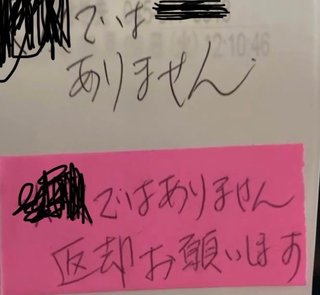 では
(火)12:10:46
ありません
ではありません
返却お願いします